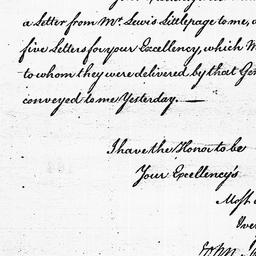 a Letter from Mr. Lewis Littlepage to me, a
five Letters for your Excellency, which M
to whom they were delivered by that Gen
conveyed to me Yesterday. —
I have the Honor to be
Your Excellency's
Most
John